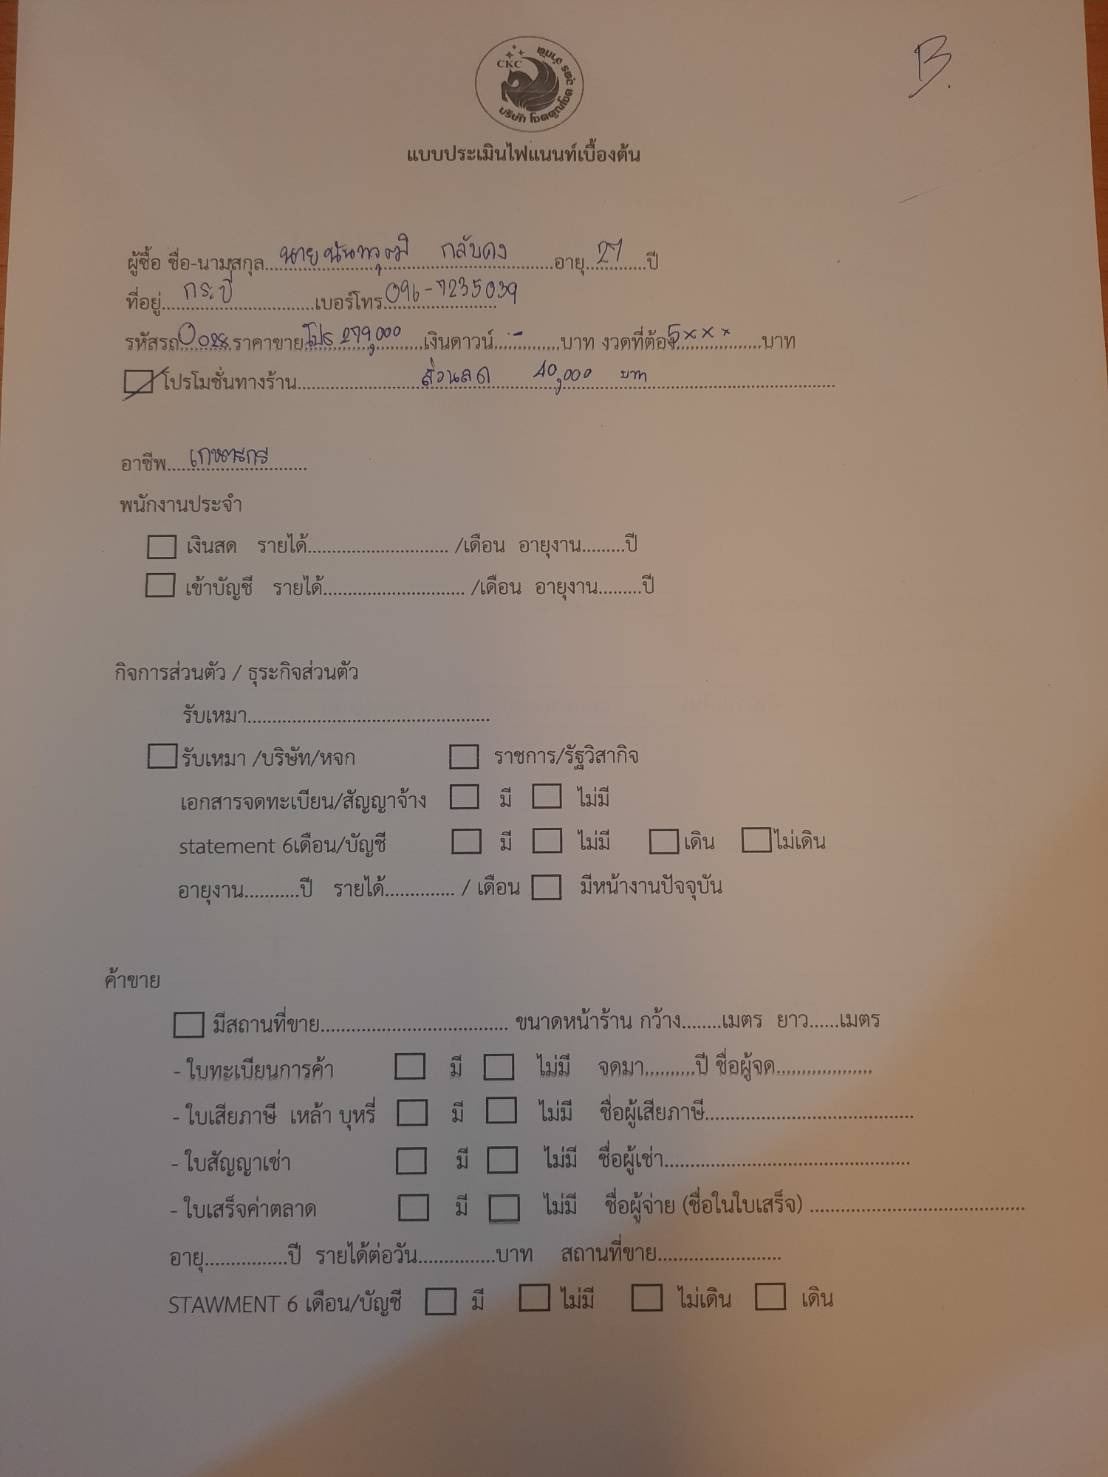 B.
CKC
บริษัท โชคคูณโชค 296 จำกัด
แบบประเมินไฟแนนท์เบื้องต้น
ผู้ซื้อ ชื่อ-นามสกุล นาย นันทวุฒิ กลับดง อายุ 27 ปี
ที่อยู่ กระบี่ เบอร์โทร 096-7235039
รหัสรถ 0028 ราคาขาย โปร 279,000 เงินดาวน์ - บาท งวดที่ต้อง 5xxx บาท
โปรโมชั่นทางร้าน ส่วนลด 40,000 บาท
อาชีพ เกษตรกร
พนักงานประจำ
เงินสด รายได้............................ /เดือน อายุงาน.........ปี
เข้าบัญชี รายได้............................ /เดือน อายุงาน.........ปี
กิจการส่วนตัว / ธุระกิจส่วนตัว
รับเหมา.................................................
รับเหมา /บริษัท/หจก ราชการ/รัฐวิสากิจ
เอกสารจดทะเบียน/สัญญาจ้าง มี ไม่มี
statement 6เดือน/บัญชี มี ไม่มี เดิน ไม่เดิน
อายุงาน...........ปี รายได้.............. / เดือน มีหน้างานปัจจุบัน
ค้าขาย
มีสถานที่ขาย...................................... ขนาดหน้าร้าน กว้าง........เมตร ยาว......เมตร
- ใบทะเบียนการค้า มี ไม่มี จดมา..........ปี ชื่อผู้จด...................
- ใบเสียภาษี เหล้า บุหรี่ มี ไม่มี ชื่อผู้เสียภาษี..........................................
- ใบสัญญาเช่า มี ไม่มี ชื่อผู้เช่า.................................................
- ใบเสร็จค่าตลาด มี ไม่มี ชื่อผู้จ่าย (ชื่อในใบเสร็จ) ...........................................
อายุ................ปี รายได้ต่อวัน...............บาท สถานที่ขาย.........................
STAWMENT 6 เดือน/บัญชี มี ไม่มี ไม่เดิน เดิน